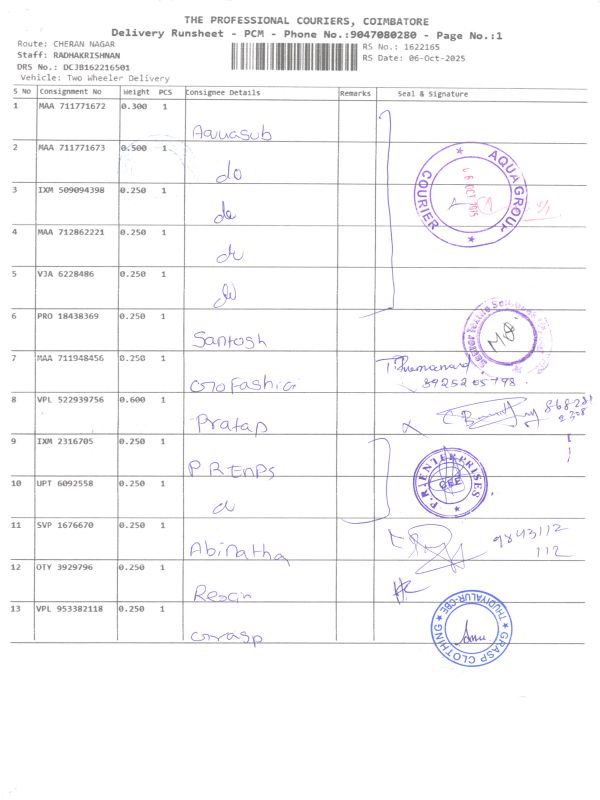 THE PROFESSIONAL COURIERS, COIMBATORE
Delivery Runsheet - PCM - Phone No.:9047080280 - Page No.:1
Route: CHERAN NAGAR
RS No.: 1622165
Staff: RADHAKRISHNAN
RS Date: 06-Oct-2025
DRS No.: DCJB162216501
Vehicle: Two Wheeler Delivery
S No Consignment No Weight PCS Consignee Details Remarks Seal & Signature
1 MAA 711771672 0.300 1 Aquasub
2 MAA 711771673 0.500 1 do
3 IXM 509094398 0.250 1 do
4 MAA 712862221 0.250 1 do
5 VJA 6228486 0.250 1 do
AQUA GROUP
COURIER
6 PRO 18438369 0.250 1 Santosh
7 MAA 711948456 0.250 1
8925205798
8 VPL 522939756 0.600 1 Pratap
9 IXM 2316705 0.250 1
P.R. ENTERPRISES
CBE
10 UPT 6092558 0.250 1
11 SVP 1676670 0.250 1
9843112
112
12 OTY 3929796 0.250 1
13 VPL 953382118 0.250 1 Grasp
THUDIYALUR-CBE
GRASP CLOTHING